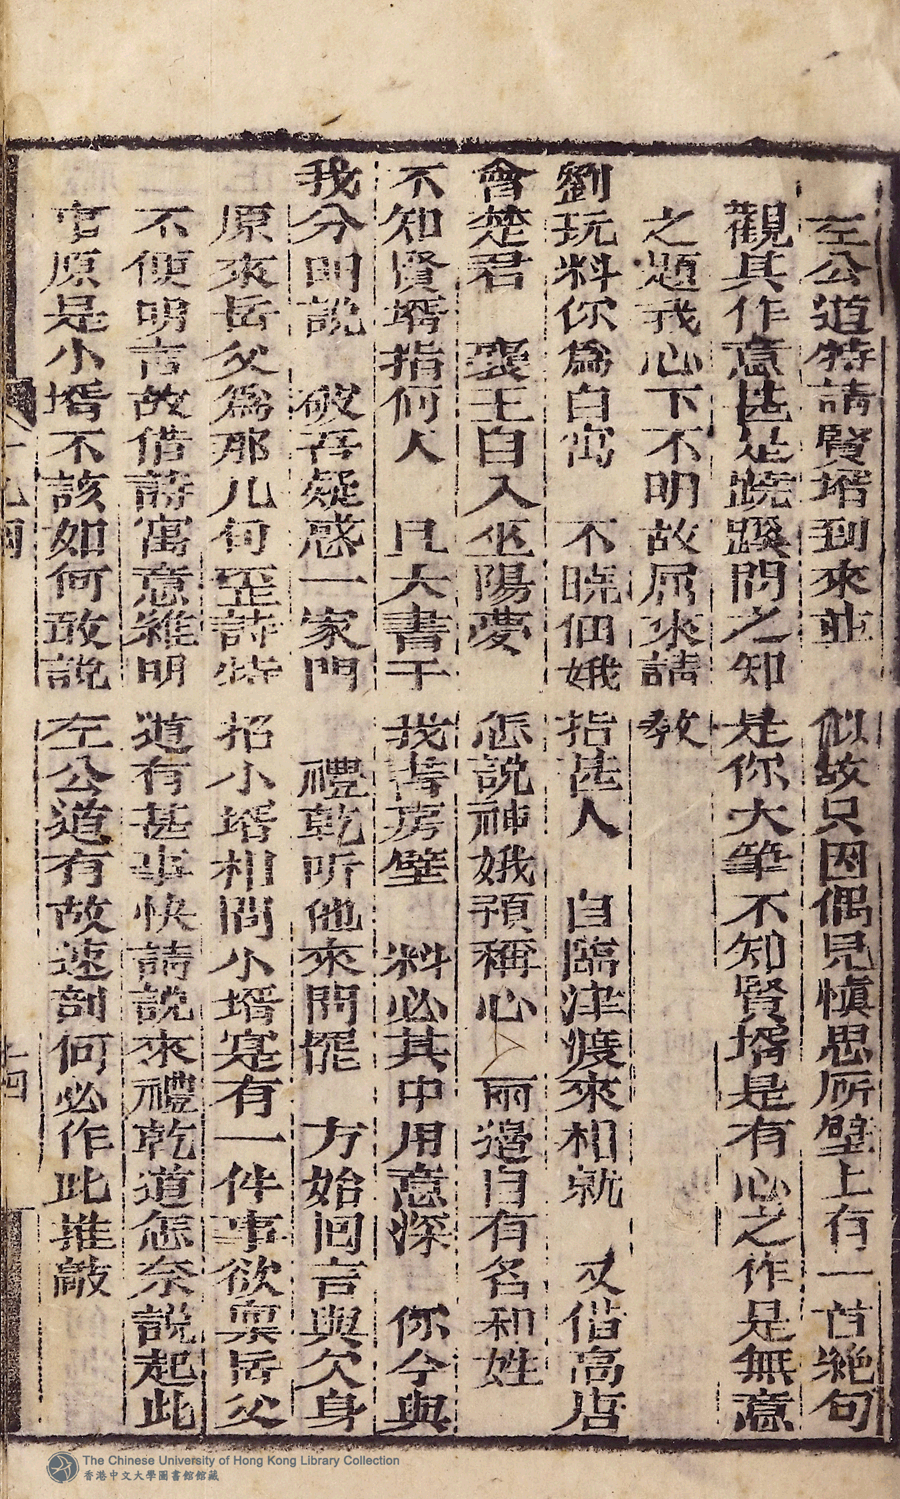 左公道特請賢壻到來並 似故只因偶見慎思所壁上有一首絕句
觀其作意甚是蹺蹊問之知 是你大筆不知賢壻是有心之作是無意
之題我心下不明故屈來請 教
劉玩料你爲白寓 不曉佃娥 指甚人 自臨津渡來相就 又偕高唐
會楚君 襄王自入巫陽夢 怎說神娥預稱心 兩邉自有名和姓
不知賢壻指何人 且大書于 我書房壁 料必其中用意深 你今與
我分明說 破吾疑惑一家門 禮乾听他來問罷 方始回言與欠身
原來岳父爲那几句歪詩特 招小壻相問小壻寔有一件事欲禀岳父
不便明言故借詩寓意雖明 道有甚事快請說來禮乾道怎奈說起此
事原是小壻不該如何敢說 左公道有故速剖何必作此推敲
十四
The Chinese University of Hong Kong Library Collection
香港中文大學圖書館館藏